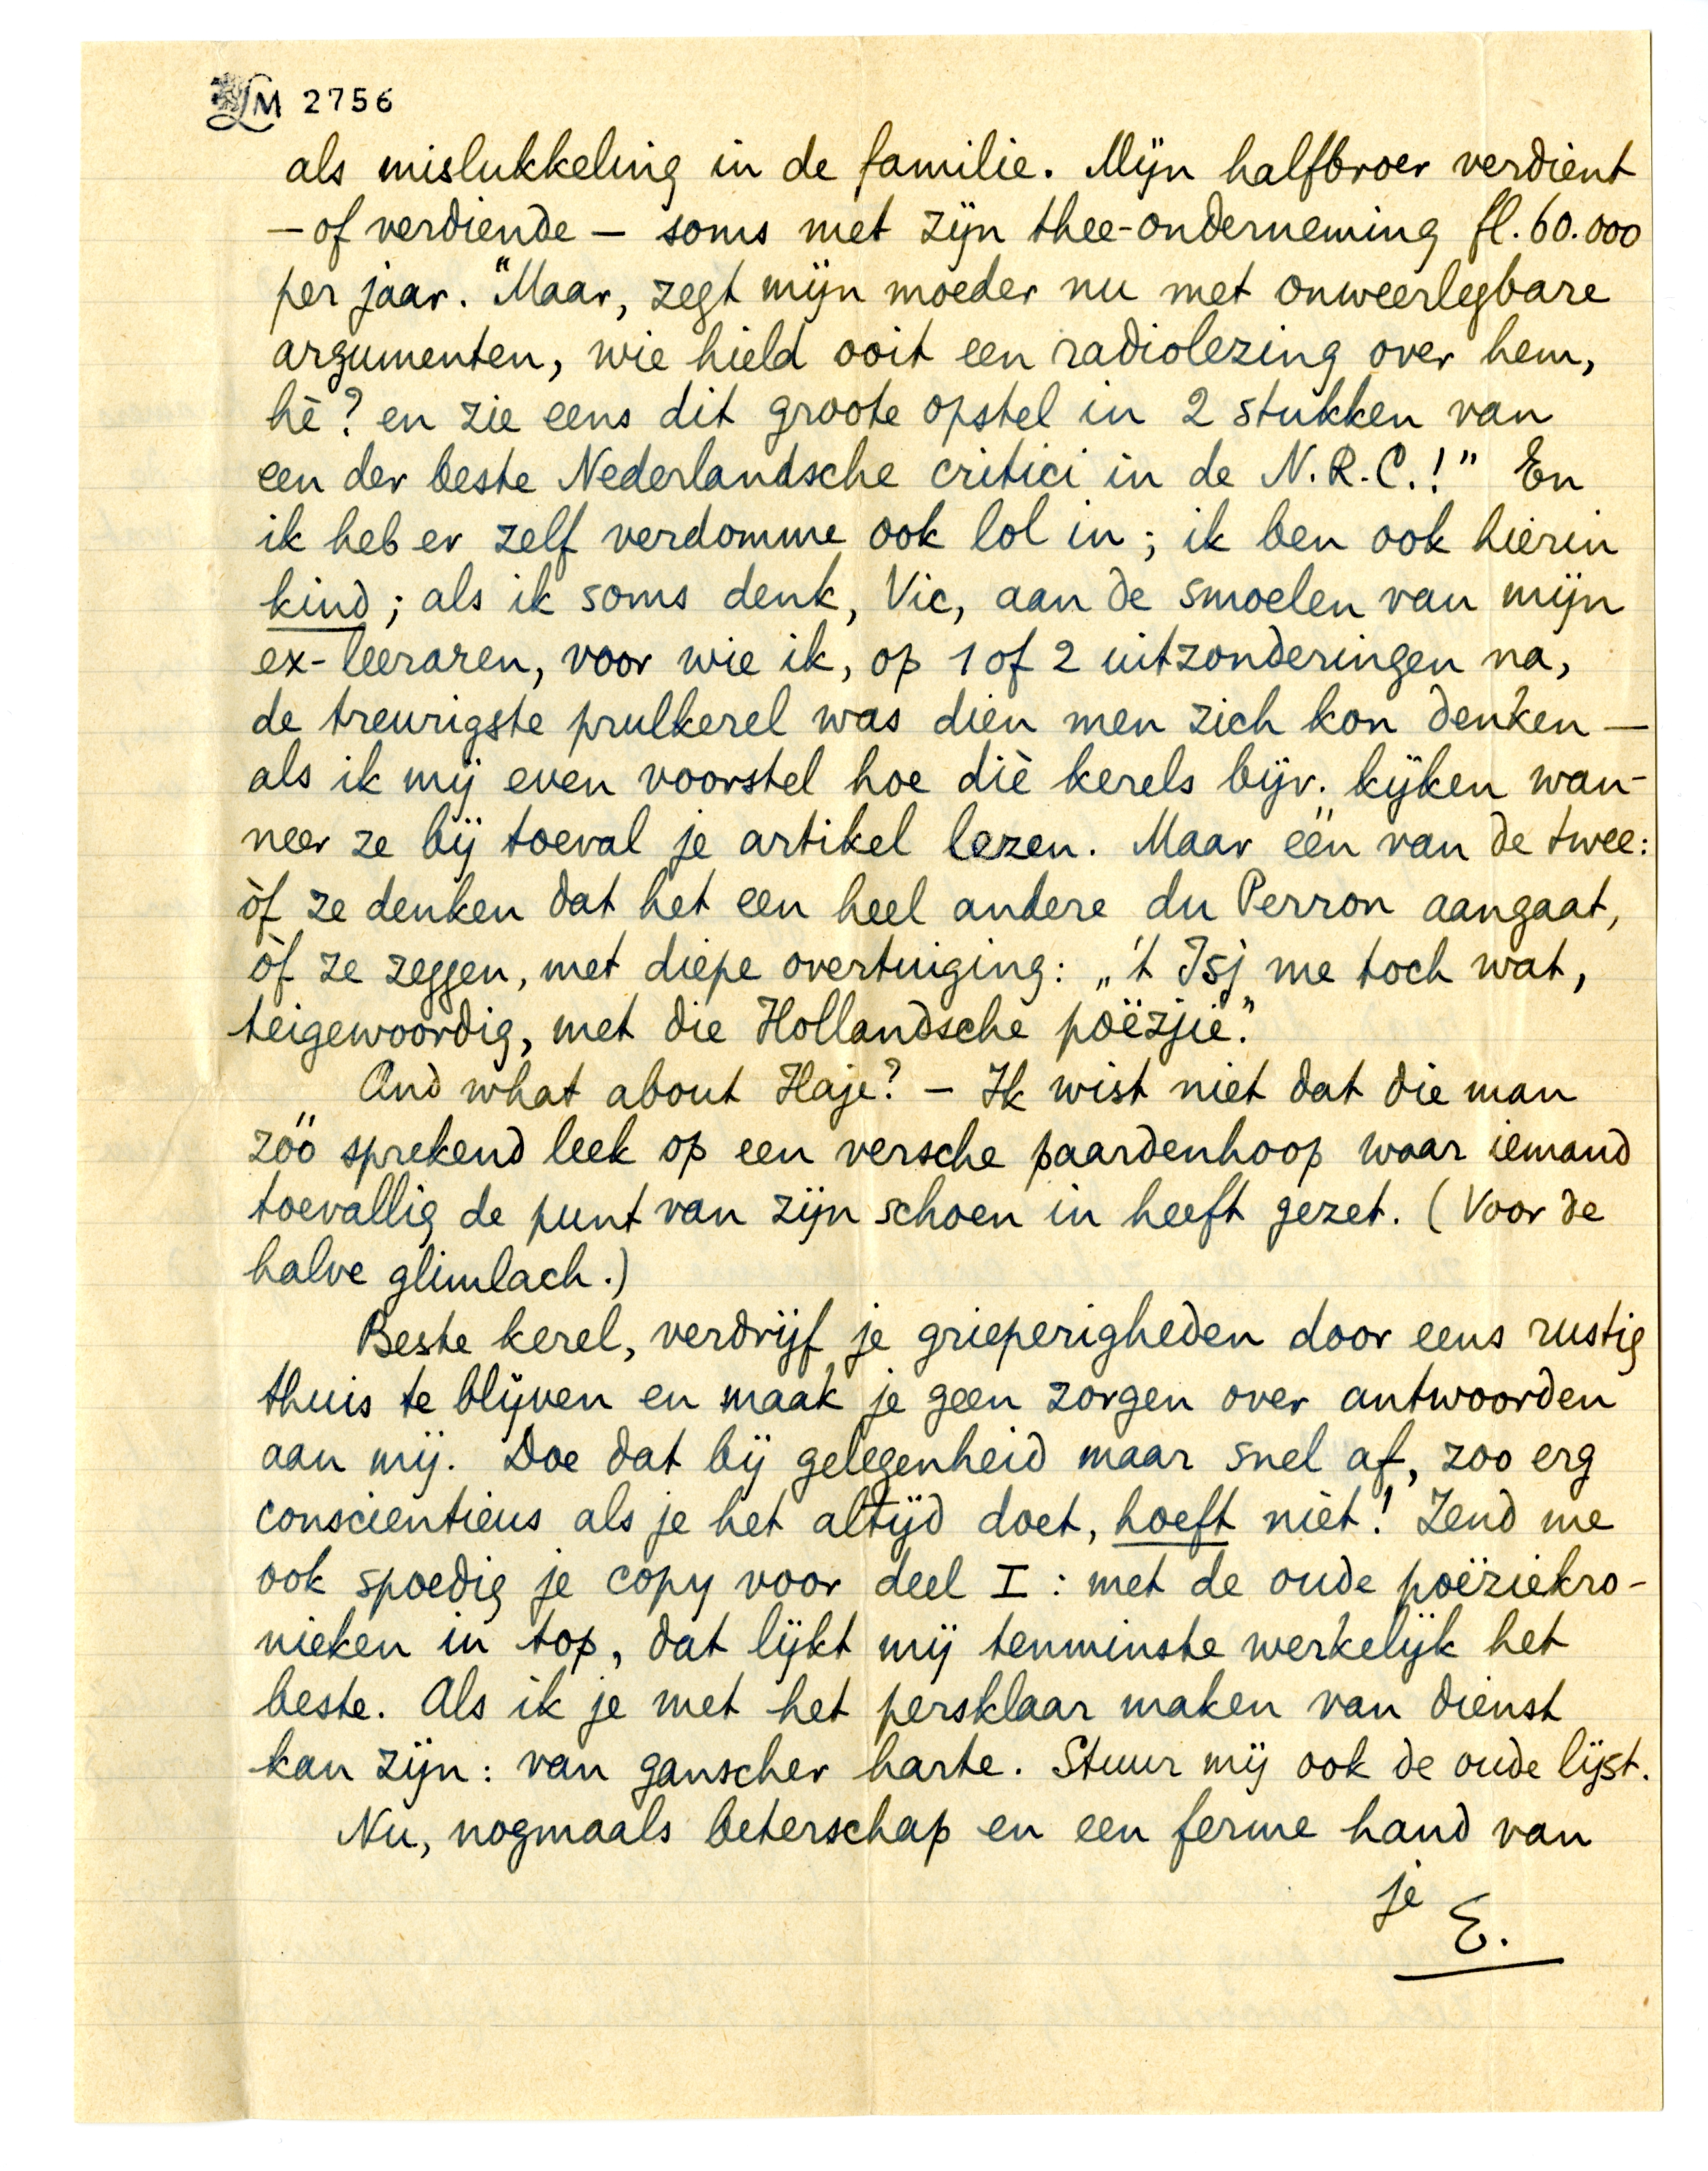 LM 2756
als mislukkeling in de familie. Mijn halfbroer verdient
— of verdiende — soms met zijn thee-onderneming fl. 60.000
per jaar. "Maar, zegt mijn moeder nu met onweerlegbare
argumenten, wie hield ooit een radiolezing over hem,
hè? en zie eens dit groote opstel in 2 stukken van
een der beste Nederlandsche critici in de N.R.C.!" En
ik heb er zelf verdomme ook lol in; ik ben ook hierin
kind; als ik soms denk, Vic, aan de smoelen van mijn
ex-leeraren, voor wie ik, op 1 of 2 uitzonderingen na,
de treurigste prulkerel was dien men zich kon denken —
als ik mij even voorstel hoe diè kerels bijv. kijken wan-
neer ze bij toeval je artikel lezen. Maar één van de twee:
òf ze denken dat het een heel andere du Perron aangaat,
òf ze zeggen, met diepe overtuiging: „'t Isj me toch wat,
teigewoordig, met die Hollandsche poëzjie."
And what about Haje? — Ik wist niet dat die man
zóó sprekend leek op een versche paardenhoop waar iemand
toevallig de punt van zijn schoen in heeft gezet. (Voor de
halve glimlach.)
Beste kerel, verdrijf je grieperigheden door eens rustig
thuis te blijven en maak je geen zorgen over antwoorden
aan mij. Doe dat bij gelegenheid maar snel af, zoo erg
conscientieus als je het altijd doet, hoeft niet! Zend me
ook spoedig je copy voor deel I: met de oude poëziekro-
nieken in top, dat lijkt mij tenminste werkelijk het
beste. Als ik je met het persklaar maken van dienst
kan zijn: van ganscher harte. Stuur mij ook de oude lijst.
Nu, nogmaals beterschap en een ferme hand van
je
E.